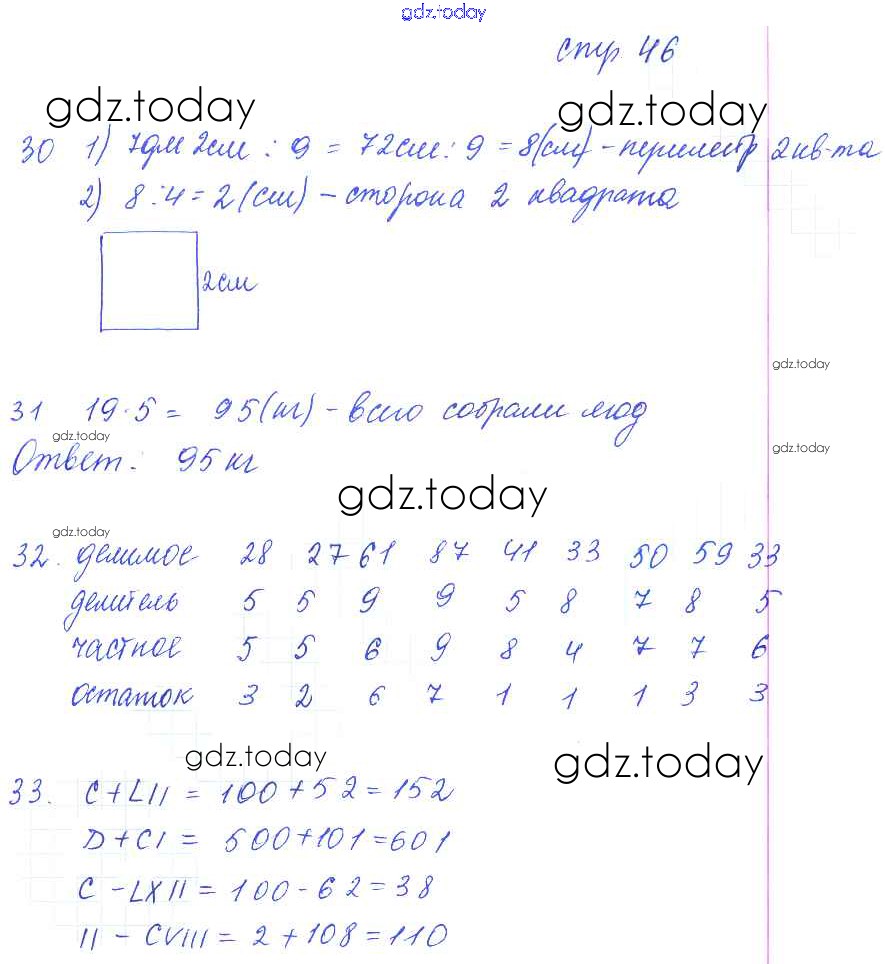 gdz.today
стр. 46
gdz.today gdz.today
30 1) 7дм 2см : 9 = 72см : 9 = 8(см) - периметр 2 кв-та
2) 8 : 4 = 2 (см) - сторона 2 квадрата
2см
gdz.today
31 19 · 5 = 95(кг) - всего собрали ягод
gdz.today
gdz.today
Ответ: 95 кг
gdz.today
gdz.today
32. делимое 28 27 61 87 41 33 50 59 33
делитель 5 5 9 9 5 8 7 8 5
частное 5 5 6 9 8 4 7 7 6
остаток 3 2 6 7 1 1 1 3 3
gdz.today gdz.today
33. C + LII = 100 + 52 = 152
D + CI = 500 + 101 = 601
C - LXII = 100 - 62 = 38
II - CVIII = 2 + 108 = 110